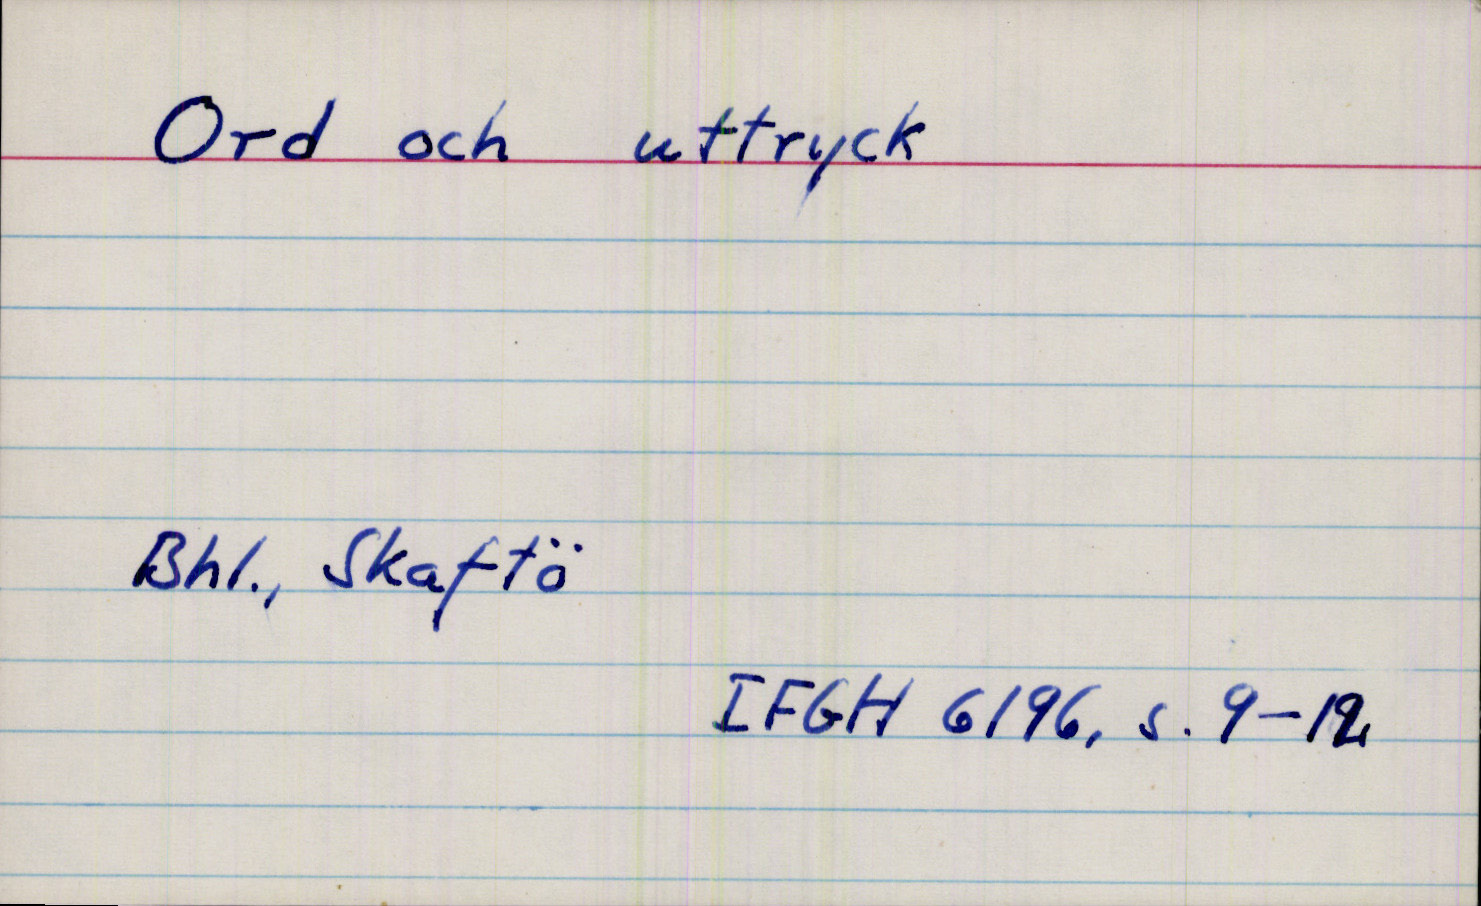 Ord och uttryck
Bhl., Skaftö
IFGH 6196, s. 9-12